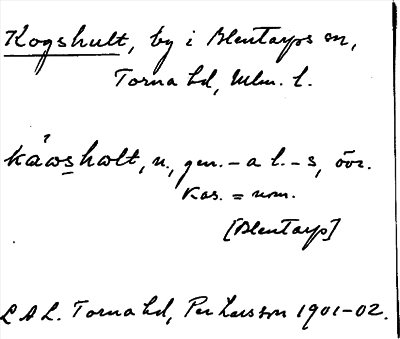 Kogshult, by i Blentarps sn,
Torna hd, Mlm. l.
káws̱hɷlt, n., gen. -a l. -s, övr.
kas. = nom.
[Blentarp]
LAL. Torna hd, Per Larsson 1901-02.